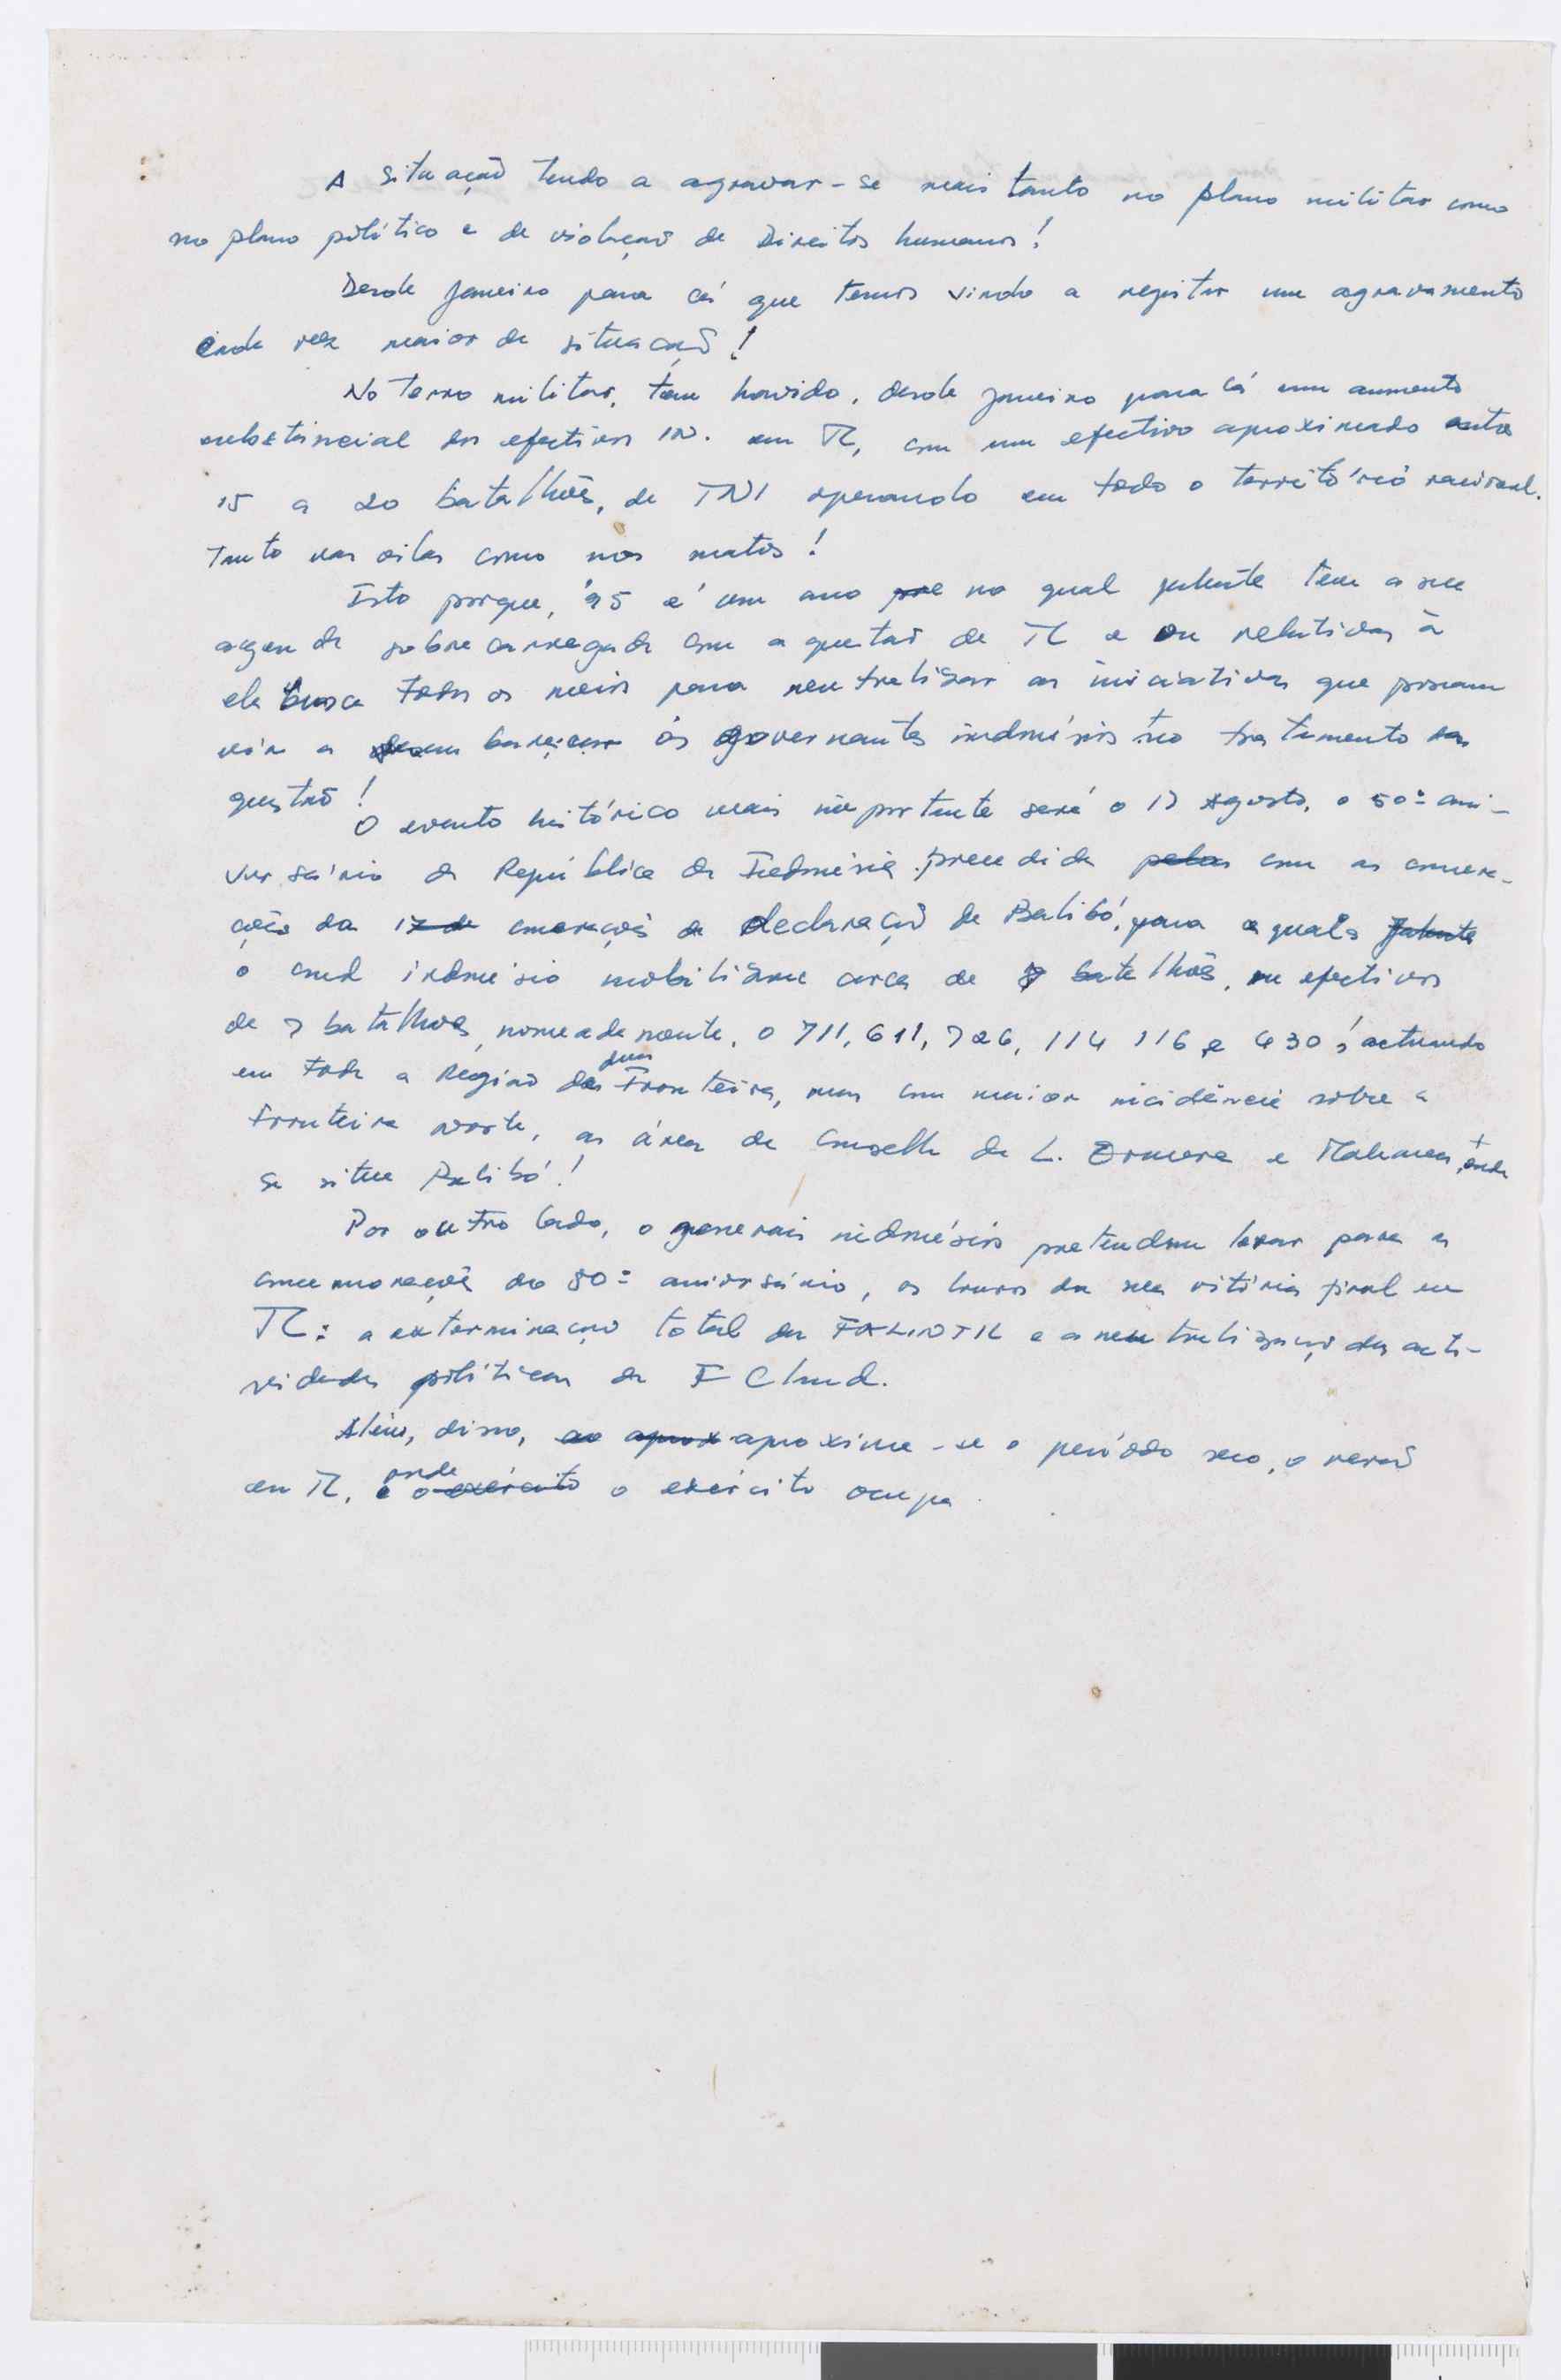 A situação tende a agravar-se mais tanto no plano militar como
no plano político e de violação de Direitos humanos!
Desde Janeiro para cá que temos vindo a registar um agravamento
cada vez maior da situação!
No terreno militar, tem havido, desde Janeiro para cá um aumento
substancial dos efectivos IN. em TL, com um efectivo aproximado entre
15 a 20 batalhões, de TNI operando em todo o território nacional.
Tanto nas vilas como nos matos!
Isto porque, '95 é um ano no qual Jakarta tem a sua
agenda sobrecarregada com a questão de TL e relativas à
ela busca todos os meios para neutralisar as iniciativas que possam
vir a embaraçar os governantes indonésios no tratamento da
questão!
O evento histórico mais importante será o 17 Agosto, o 50º ani-
versário da República da Indonésia. com as comemo-
rações da declaração de Balibó, para a qual
o cmd indonésio mobilisou cerca de batalhões, efectivos
de 7 batalhões, nomeadamente, o 711, 611, 726, 114 116 e 430 actuando
em toda a Região da Fronteira, mas com maior incidência sobre a
Fronteira norte, as áreas de de L. e Maliana, onde
se situa Balibó!
Por outro lado, o generais indonésios pretendem levar para as
comemorações do 50º aniversário, os louros da sua vitória final em
TL: a exterminação total das FALINTIL e a neutralização das acti-
vidades políticas da F Cland.
Além, disso, ao aprox aproxima-se o período seco, o verão
em TL, e onde o exército o exército ocupa